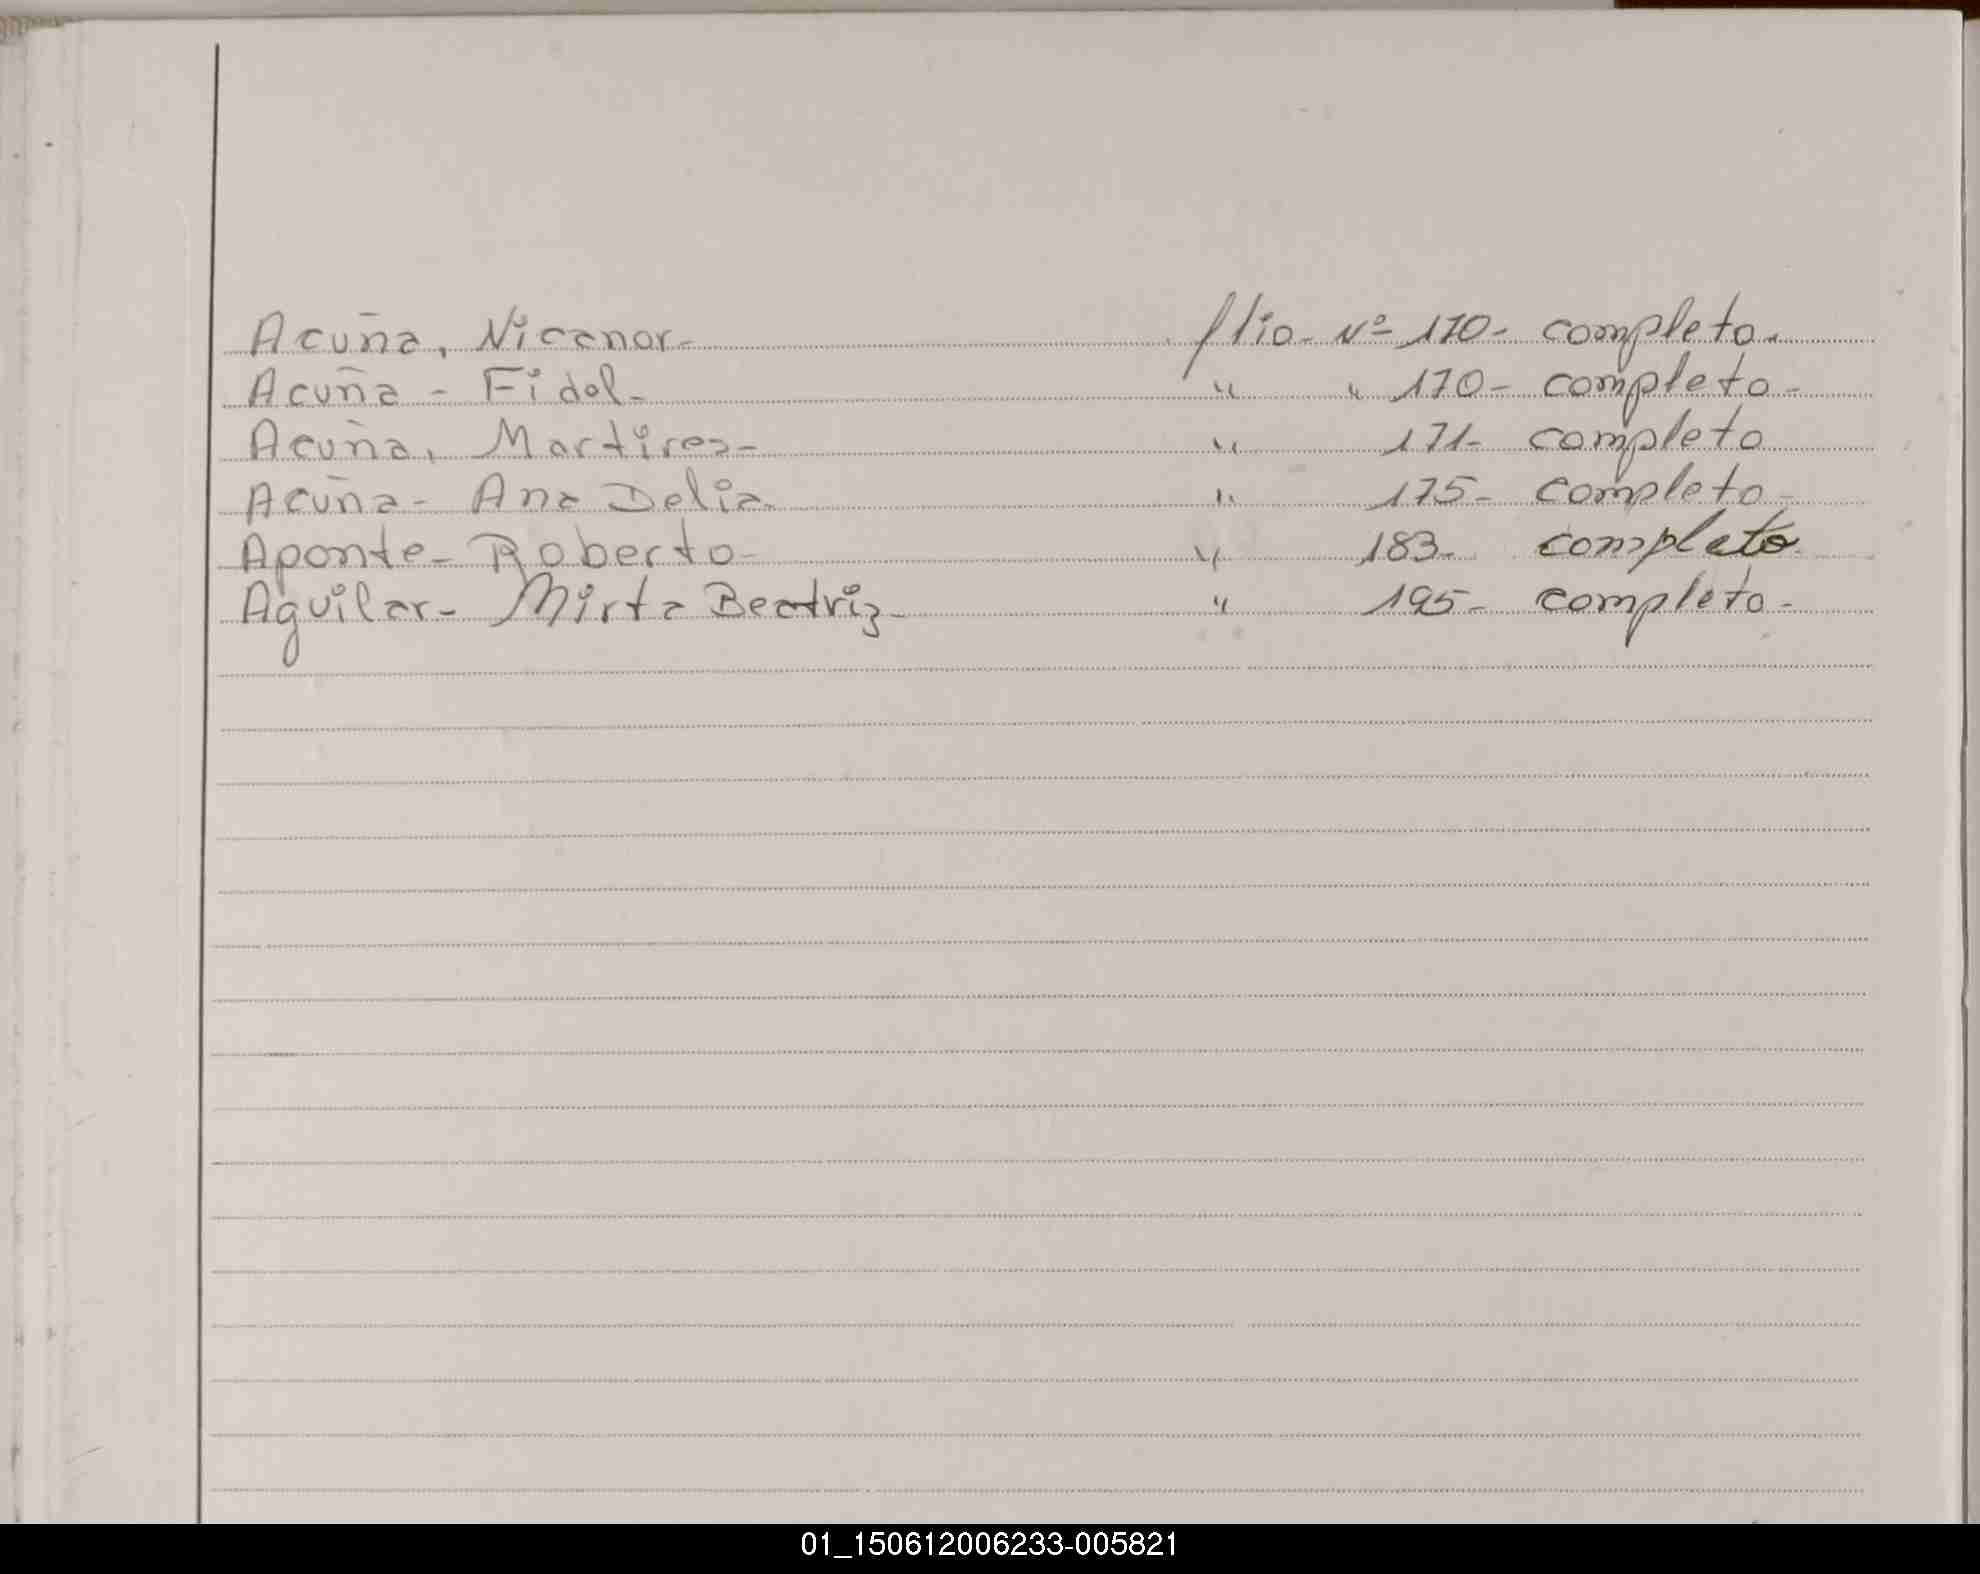 Acuña, Nicanor- flio- Nº 170- completo.
Acuña - Fidel- " " 170- completo-
Acuña, Martires- " 171- completo
Acuña- Ana Delia- " 175- completo-
Aponte- Roberto- " 183- completo-
Aguilar- Mirta Beatriz- " 195- completo-
01_150612006233-005821